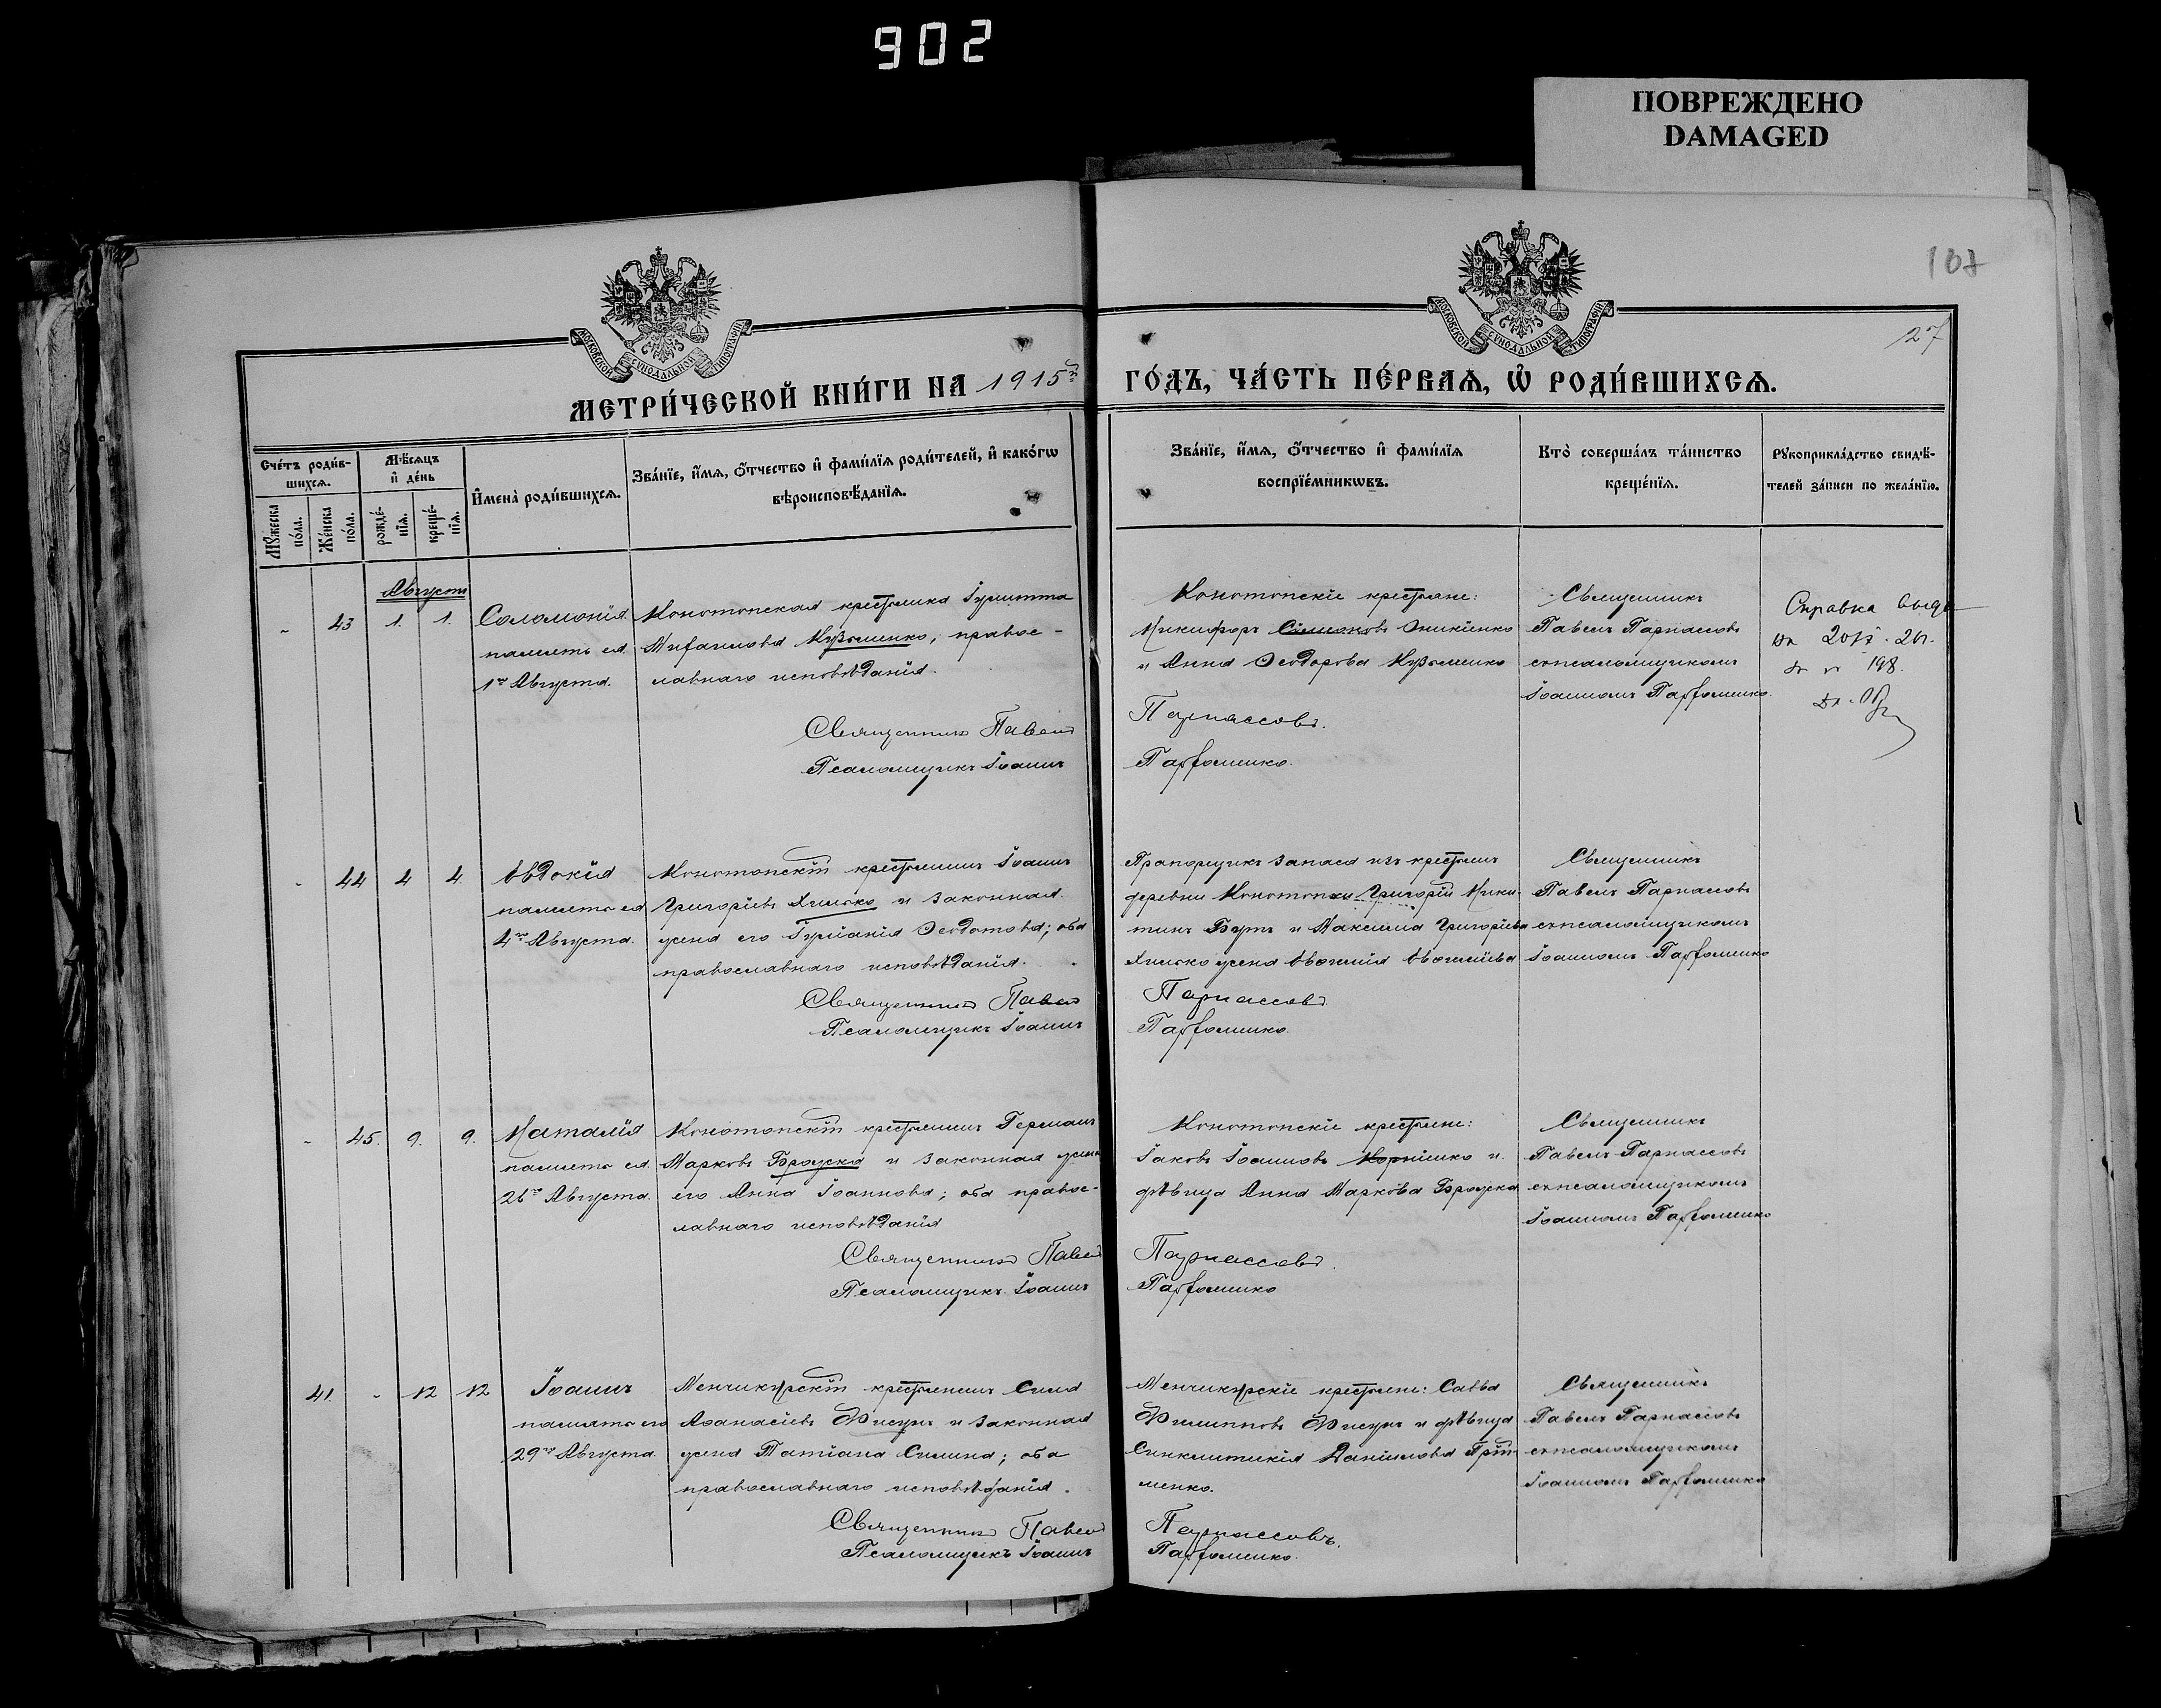 902
ПОВРЕЖДЕНО
DAMAGED
107
27
МОСКОВСКОЙ СѴНОДАЛЬНОЙ ТИПОГРАФІИ
МОСКОВСКОЙ СѴНОДАЛЬНОЙ ТИПОГРАФІИ
МЕТРИ́ЧЕСКОЙ КНИ́ГИ НА 1915й
ГО́ДЪ, ЧА́СТЬ ПЕ́РВАѦ, Ѽ РОДИ́ВШИХСѦ.
Сче́тъ роди́в-
шихсѧ.
Мꙋ́жеска по́ла.
Же́нска по́ла.
Мѣ́сѧцъ
и҆ де́нь
рожде́-
нїѧ.
креще́-
нїѧ.
И҆мена̀ роди́вшихсѧ.
Зва́нїе, и҆́мѧ, ѻ҆́тчество и҆ фами́лїѧ роди́телей, и҆ како́гѡ
вѣроисповѣ́данїѧ.
Зва́нїе, и҆́мѧ, ѻ҆́тчество и҆ фами́лїѧ
воспрїе́мникѡвъ.
Кто̀ соверша́лъ та́инство
креще́нїѧ.
Рꙋкоприкла́дство свидѣ́-
телей за́писи по жела́нїю.
Августъ
- 43 1. 1.
Соломонія
память ея
1го Августа.
Конотопская крестьянка Іулитта
Михаилова Кузьменко, правос-
лавнаго исповѣданія.
Священникъ Павелъ
Псаломщикъ Іоаннъ
Конотопскіе крестьяне:
Никифоръ Симоновъ Оникіенко
и Анна Ѳеодорова Кузьменко
Парнассовъ.
Парфоменко.
Священникъ
Павелъ Парнассовъ
съ псаломщикомъ
Іоанномъ Парфоменко.
Справка
198.
- 44 4 4.
Евдокія
память ея
4го Августа.
Конотопскій крестьянинъ Іоаннъ
Григоріевъ Химко и законная
жена его Іуліанія Ѳеодотова; оба
православнаго исповѣданія.
Священникъ Павелъ
Псаломщикъ Іоаннъ
Прапорщикъ запаса изъ крестьянъ
деревни Конотопки Григорій Ники-
тинъ Бутъ и Максима Григорьева
Химко жена Евгенія Евгеніева
Парнассовъ
Парфоменко.
Священникъ
Павелъ Парнассовъ
съ псаломщикомъ
Іоанномъ Парфоменко
- 45. 9. 9.
Наталія
память ея
26го Августа.
Конотопскій крестьянинъ Германъ
Марковъ Бражка и законная жена
его Анна Іоаннова; оба правос-
лавнаго исповѣданія
Священникъ Павелъ
Псаломщикъ Іоаннъ
Конотопскіе крестьяне:
Іаковъ Іоанновъ Корніенко и
дѣвица Анна Маркова Бражка
Парнассовъ.
Парфоменко
Священникъ
Павелъ Парнассовъ
съ псаломщикомъ
Іоанномъ Парфоменко
41. - 12 12
Іоаннъ
память его
29го Августа.
Менчикурскій крестьянинъ Сила
Аѳанасіевъ Фисунъ и законная
жена Татіана Силина; оба
православнаго исповѣданія.
Священникъ Павелъ
Псаломщикъ Іоаннъ
Менчикурскіе крестьяне: Савва
Филипповъ Фисунъ и дѣвица
Синклитикія Даніилова
менко.
Парнассовъ.
Парфоменко.
Священникъ
Павелъ Парнассовъ
съ псаломщикомъ
Іоанномъ Парфоменко